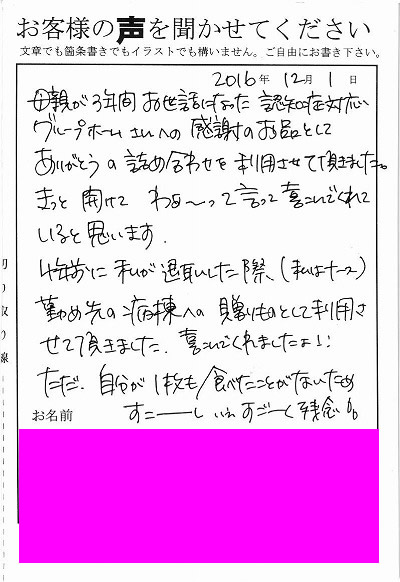 お客様の声を聞かせてください
文章でも箇条書きでもイラストでも構いません。ご自由にお書き下さい。
2016年 12月 1日
母親が3年間お世話になった認知症対応
グループホームさんへの感謝のお品として
ありがとうの詰め合わせを利用させて頂きました。
きっと開けて わぁ〜って言って喜こんでくれて
いると思います.
4年前に私が退職した際、(私はナース)
勤め先の病棟への贈りものとして利用さ
せて頂きました. 喜こんでくれましたよ!!
ただ、自分が1枚も食べたことがないため
すこーーし いえ すごーく残念
お名前
切り取り線